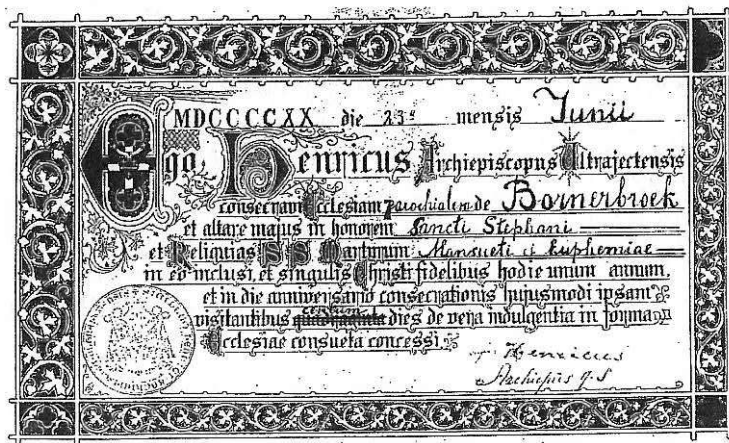 MDCCCCXX die 23ª mensis Junii
Ego, Henricus Archiepiscopus Ultrajectensis
consecravi Ecclesiam parochialem de Bornerbroek
et altare majus in honorem Sancti Stephani
et Reliquias S S Martyrum Mansueti et Euphemiae
in eo inclusi, et singulis Christi fidelibus hodie unum annum,
et in die anniversario consecrationis hujusmodi ipsam
visitantibus centum quadraginta dies de vera indulgentia in forma
Ecclesiae consueta concessi.
Henricus